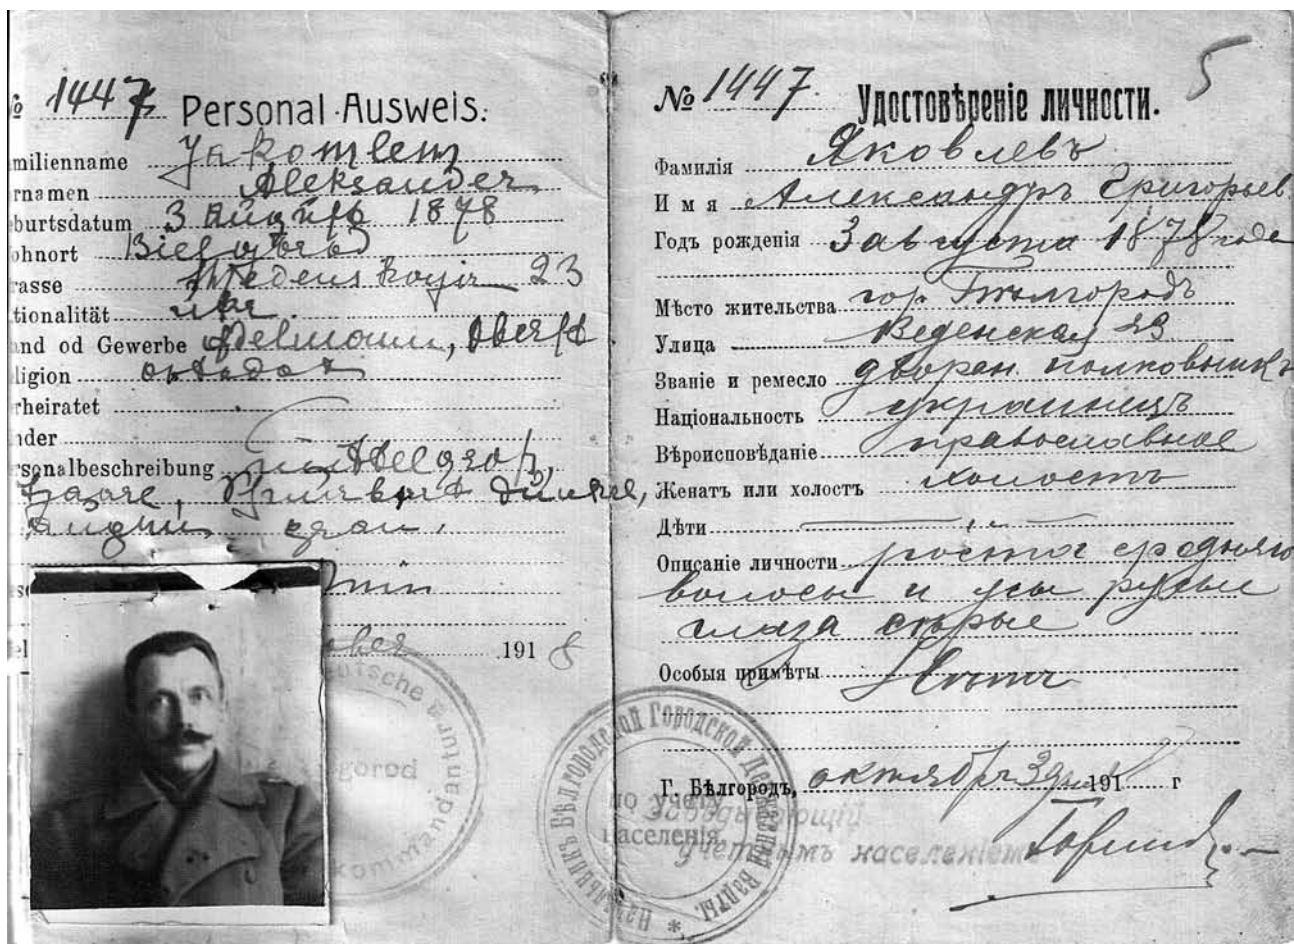 № 1447 Personal-Ausweis.
milienname Jakowlew
rnamen Aleksander
burtsdatum 3 August 1878
ohnort Bielgorod
rasse Wedenskaja 23
tionalität ukr.
and od Gewerbe Edelmann, Oberst
ligion ortodox
rheiratet
nder
rsonalbeschreibung mittelgroß,
Haare, Schnurrbart dunkel,
Augen grau.
ber 1918
eutsche
gorod
kommandantur
5
№ 1447. Удостовѣреніе личности.
Фамилія Яковлевъ
Имя Александръ Григорьев.
Годъ рожденія 3 августа 1878 года
Мѣсто жительства гор. Бѣлгородъ
Улица Веденская 23
Званіе и ремесло дворян. полковникъ
Національность украинецъ
Вѣроисповѣданіе православное
Женатъ или холостъ холостъ
Дѣти
Описаніе личности роста средняго
волосы и усы русые
глаза сѣрые
Особыя примѣты Нѣтъ
Г. Бѣлгородъ, октября 3 дня 1918 г
Завѣдывающій
учетнымъ населеніемъ
Начальникъ Бѣлгородской Городской Державной Варты.
по учету
населенія